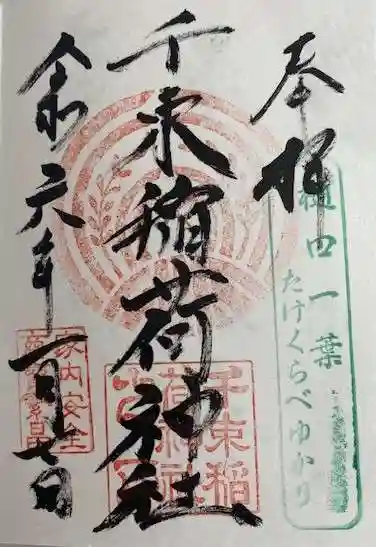 奉拝
樋口一葉
たけくらべゆかり
千束稲荷神社
千束稲
荷神社
令和元年一月七日
家内安全
商売繁昌